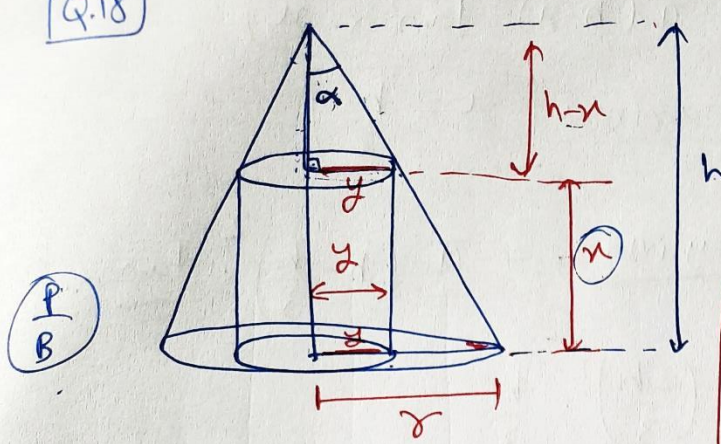 Q.18
α
h-x
h
y
y
x
P
B
y
r